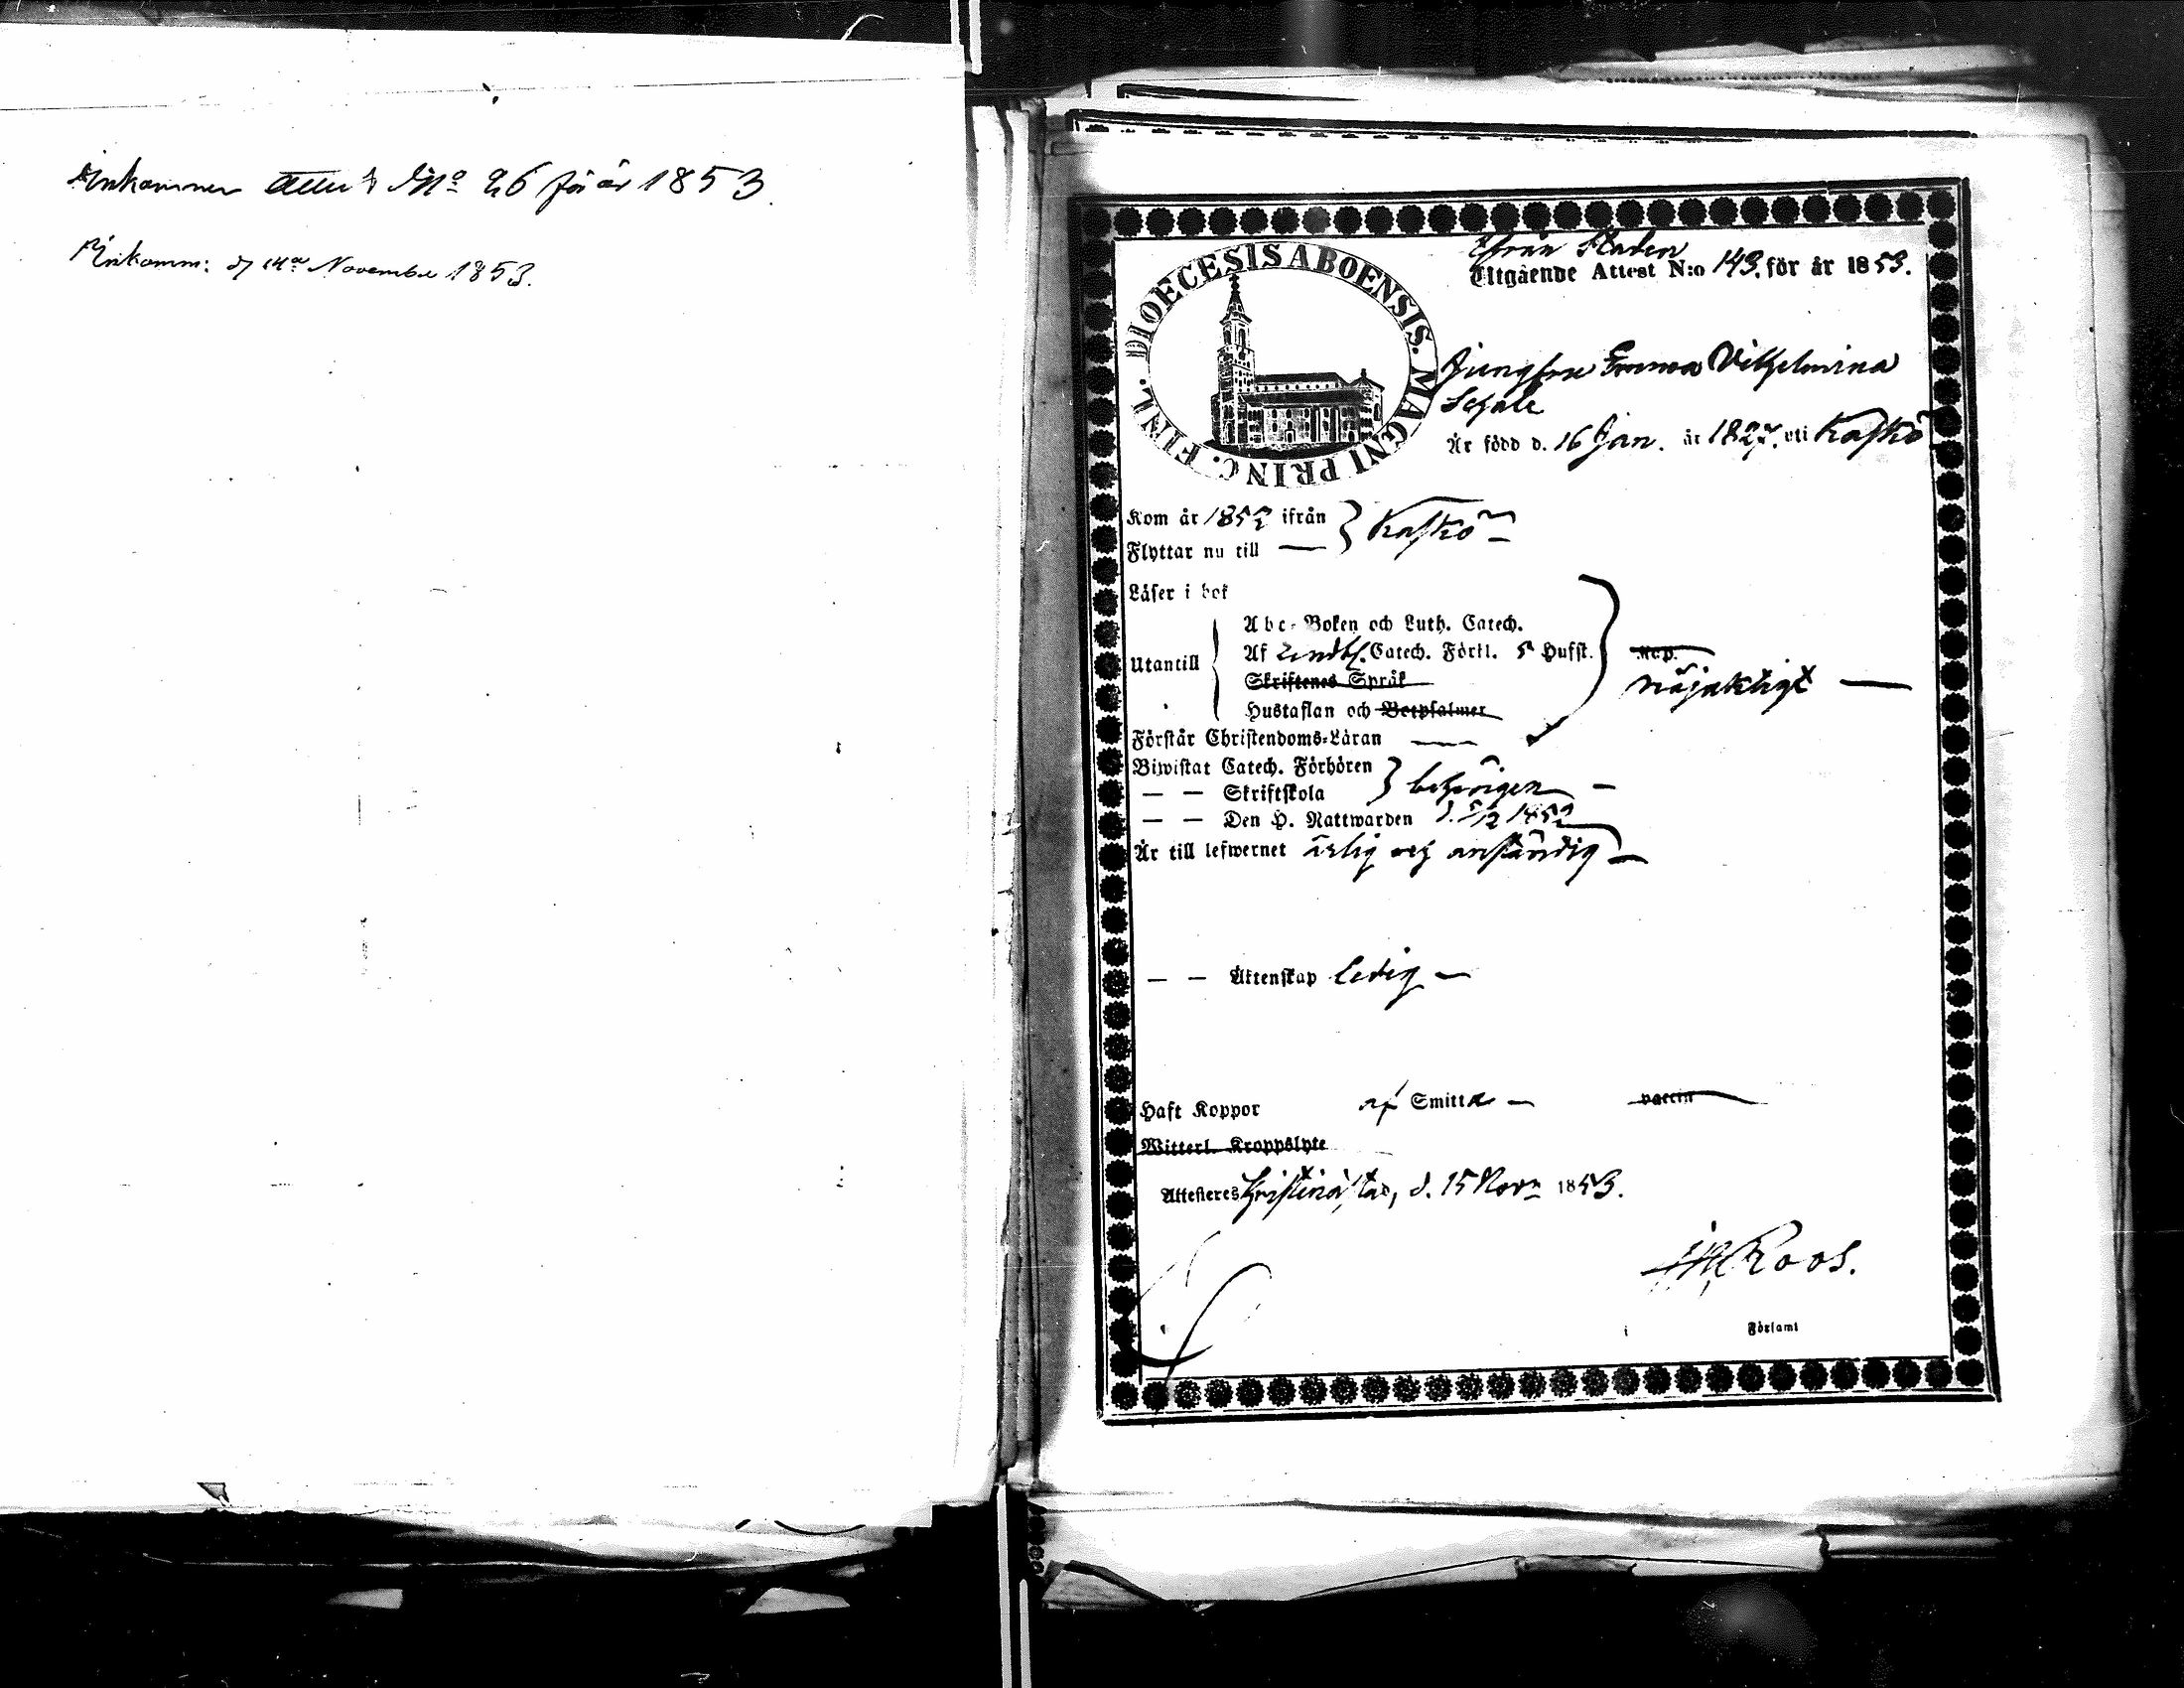 Ankommen Attest No 26 för år 1853.
Ankomm: d November 1853.
DIOECESIS ABOENSIS. MAGNI PRINC. FINL.
Ifrån Staden
Utgående Attest N:o 143. för år 1853.
Jungfru Emma Vilhelmina
Är född d. 16 Jan. år 1827. uti Kaskö
Kom år 1852 ifrån } Kaskö
Flyttar nu till —
Läser i bok
Abc-Boken och Luth. Catech.
Utantill Af Lindbl. Catech. Förkl. 5 Hufst.
Skriftenes Språk
nöjaktigt —
Hustaflan och Botpsalmer
Förstår Christendoms-Läran —
Biwistat Catech. Förhören } behörigen —
— — Skriftskola
— — Den H. Nattwarden d. 5/12 1852
Är till lefwernet ärlig och anständig —
— — Äktenskap ledig —
Haft Koppor af Smitta — vaccin
Witterl. Kroppslyte
Attesteres Kristinæstad, d. 15 Nov. 1853.
Roos.
i Församl